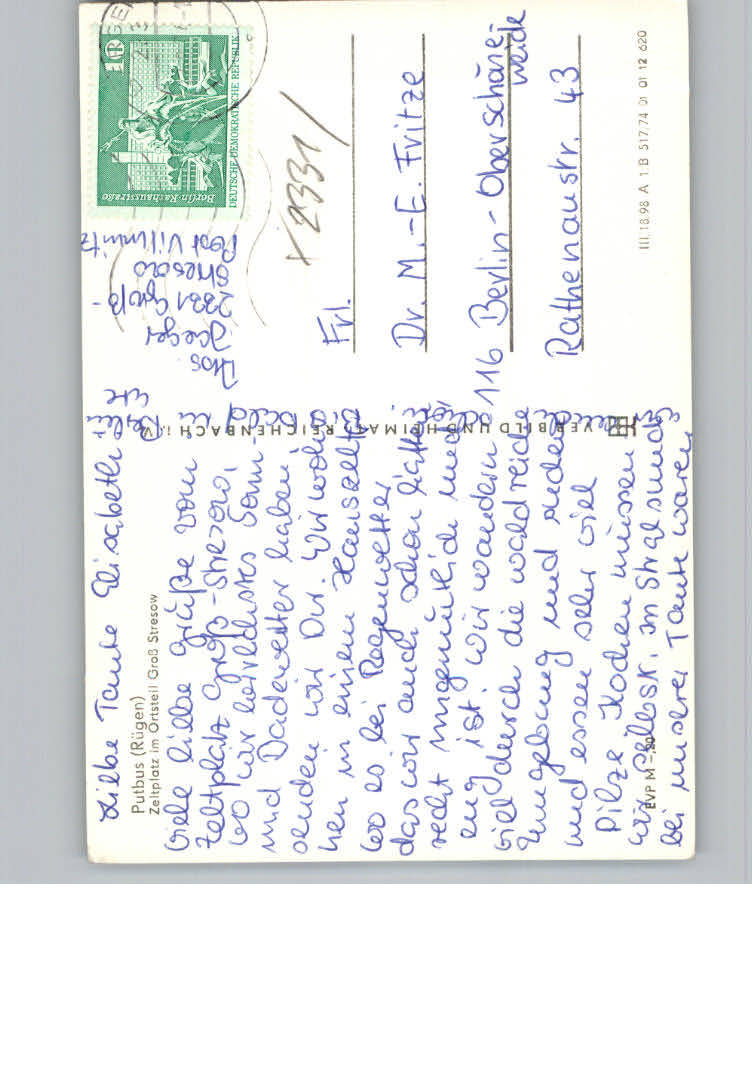 Liebe Tante Elisabeth!
Putbus (Rügen)
Zeltplatz im Ortsteil Groß Stresow
Viele liebe Grüße vom
Zeltplatz Groß-Stresow,
wo wir herrlichstes Sonn
und Badewetter haben,
senden wir Dir. Wir woh
nen in einem Hauszelt,
wo es bei Regenwetter
das wir auch schon hatten
recht ungemütlich und
eng ist. Wir wandern
viel durch die waldreiche
Umgebung und
und essen sehr viel
Pilze. Kochen müssen
wir selbst. In Stralsund
bei unserer Tante waren
EVP M -,20
VEB BILD UND HEIMAT REICHENBACH i. V.
Abs.
Jaeger
2331 Groß-
Stresow
Post Vilmnitz
10
Berlin-Rathausstraße
DEUTSCHE DEMOKRATISCHE REPUBLIK
x 2331/
Frl.
Dr. M.-E. Fritze
116 Berlin-Oberschöne-
weide
Rathenaustr. 43
III 18 98 A 1 B 517/74 01 01 12 620